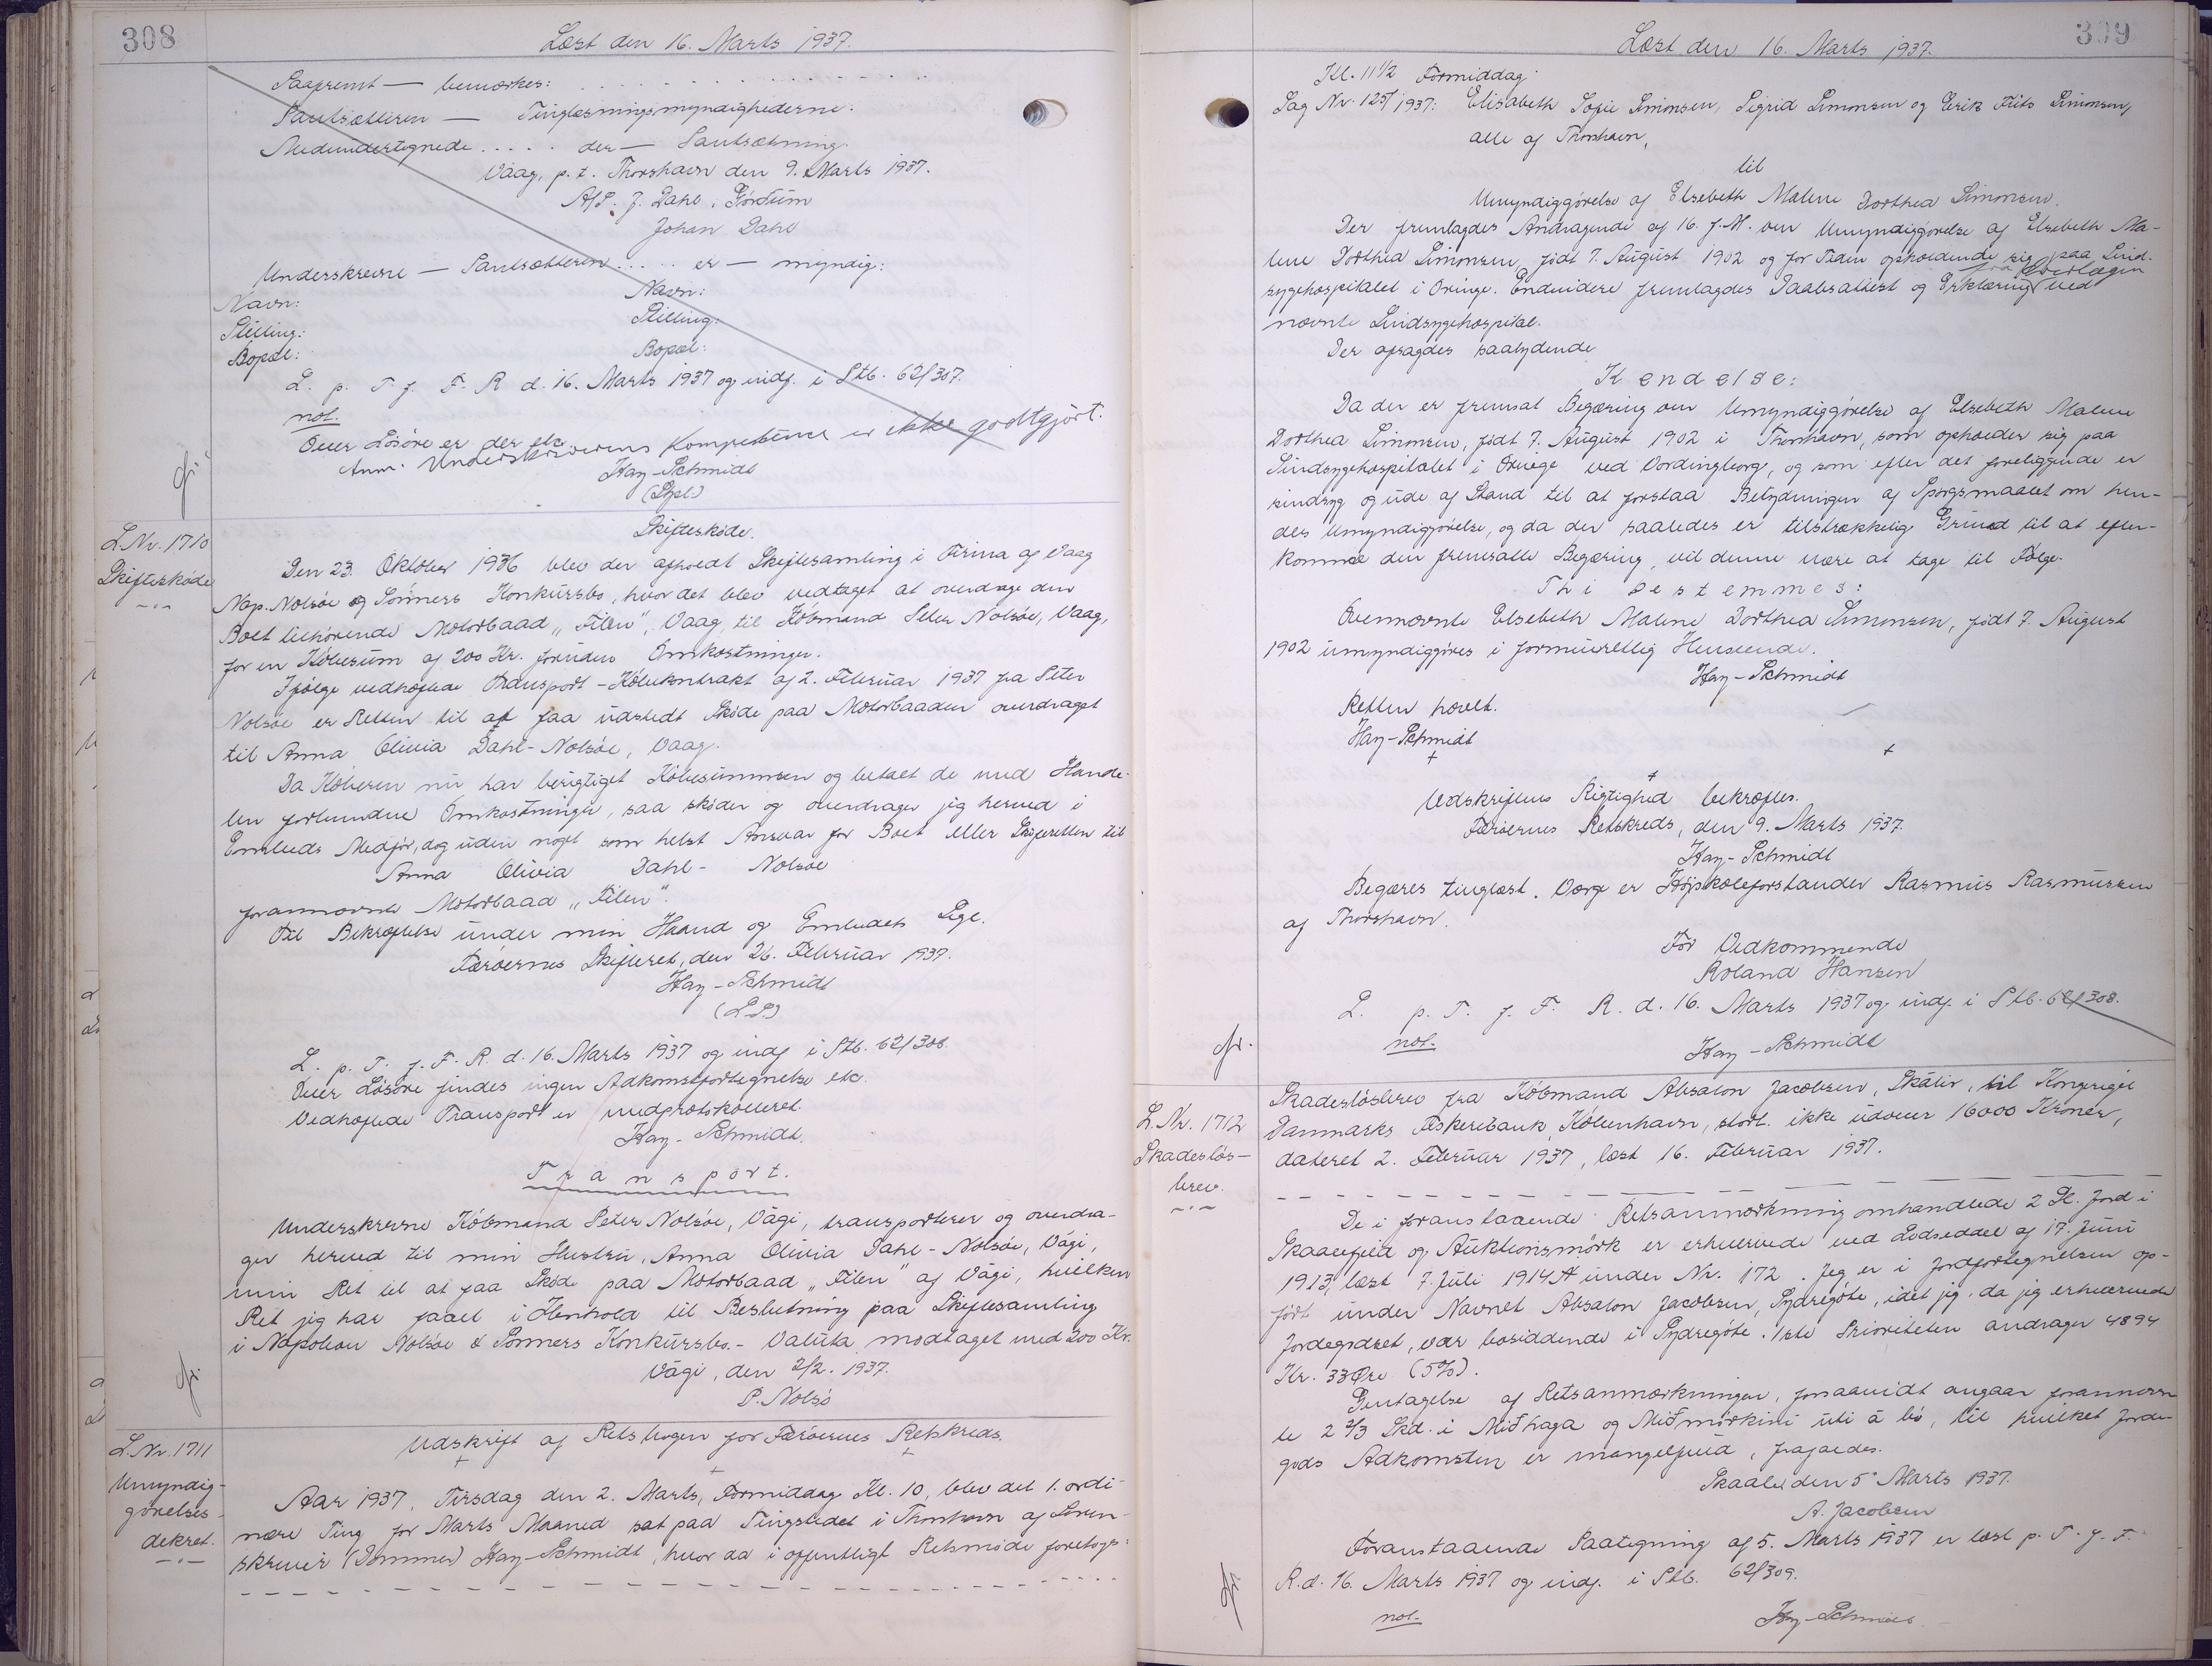 308
Læst den 16. Marts 1937.
Saafremt — bemærkes: . . . . . . . . . .
Pantsætteren — Tinglæsningsmyndighederne.
Medundertegnede . . . . . der — Pantsætning.
Vaag, p.t. Thorshavn den 9. Marts 1937.
A/S. J. Dahl,
Johan Dahl
Underskrevne — Pantsætteren . . . . . er — myndig:
Navn: Navn:
Stilling: Stilling:
Bopæl: Bopæl:
L. p. T. f. F. R d. 16. Marts 1937 og indf. i Ptb. 62/307.
not.
Over Løsøre er der etc.
Anm. Underskriverens Kompetence er ikke godtgjort.
Hay-Schmidt
L.Nr. 1710
Skifteskøde
-"-
Skifteskøde.
Den 23. Oktober 1936 blev der afholdt Skiftesamling i Firma af Vaag
Nap. Nolsøe og Sønners Konkursbo, hvor det blev vedtaget at overdrage den
Boet tilhørende Motorbaad „Filen", Vaag, til Købmand Peter Nolsøe, Vaag,
for en Købesum af 200 Kr. foruden Omkostninger.
Ifølge vedhæftede Transport-Købekontrakt af 2. Februar 1937 fra Peter
Nolsøe er Retten til at faa udstedt Skøde paa Motorbaaden overdraget
til Anna Olivia Dahl-Nolsøe, Vaag.
Da Køberen nu har berigtiget Købesummen og betalt de med Hande-
len forbundne Omkostninger, saa skøder og overdrager jeg herved i
Embeds Medfør, dog uden noget som helst Ansvar for Boet eller Skifteretten til
Anna Olivia Dahl-Nolsøe
forannævnte Motorbaad „Filen".
Til Bekræftelse under min Haand og Embedets Segl.
Færøernes Skifteret, den 26. Februar 1937.
Hay-Schmidt
(L.S.)
L. p. T. f. F. R. d. 16. Marts 1937 og indf i Ptb. 62/308.
Over Løsøre findes ingen Adkomstfortegnelse etc.
Vedhæftede Transport er medprotokolleret.
Hay-Schmidt.
Transport.
Underskrevne Købmand Peter Nolsøe, Vági, transporterer og overdra-
ger herved til min Hustru, Anna Olivia Dahl-Nolsøe, Vági,
min Ret til at faa Skøde paa Motorbaad „Filen" af Vági, hvilken
Ret jeg har faaet i Henhold til Beslutning paa Skiftesamling
i Napoleon Nolsøe & Sønners Konkursbo.- Valuta modtaget med 200 Kr.
Vági, den 2/2. 1937.
P. Nolsø
L.Nr. 1711
Umyndig-
gørelses-
dekret.
-"-
Udskrift af Retsbogen for Færøernes Retskreds.
Aar 1937, Tirsdag den 2. Marts, Formiddag Kl. 10, blev det 1. ordi-
nære Ting for Marts Maaned sat paa Tingstedet i Thorshavn af Soren-
skriver (Dommer) Hay-Schmidt, hvor da i offentligt Retsmøde foretoges:
309
Læst den 16. Marts 1937.
Kl. 11 1/2 Formiddag.
Sag Nr. 125/1937: Elisabeth Sofie Simonsen, Sigrid Simonsen og Erik Frits Simonsen,
alle af Thorshavn,
til
Umyndiggørelse af Elsebeth Malene Dorthea Simonsen.
Der fremlagdes Andragende af 16. f.M. om Umyndiggørelse af Elsebeth Ma-
lene Dorthea Simonsen, født 7. August 1902 og for Tiden opholdende sig paa Sind-
sygehospitalet i Oringe. Endvidere fremlagdes Daabsattest og Erklæring fra Overlægen ved
nævnte Sindsygehospital.
Der afsagdes saalydende
Kendelse:
Da der er fremsat Begæring om Umyndiggørelse af Elsebeth Malene
Dorthea Simonsen, født 7. August 1902 i Thorshavn, som opholder sig paa
Sindsygehospitalet i Oringe ved Vordingborg, og som efter det foreliggende er
sindsyg og ude af Stand til at forstaa Betydningen af Spørgsmaalet om hen-
des Umyndiggørelse, og da der saaledes er tilstrækkelig Grund til at efter-
komme den fremsatte Begæring, vil denne være at tage til Følge.
Thi bestemmes:
Ovennævnte Elsebeth Malene Dorthea Simonsen, født 7. August
1902 umyndiggøres i formueretlig Henseende.
Hay-Schmidt
Retten hævet.
Hay-Schmidt
Udskriftens Rigtighed bekræftes.
Færøernes Retskreds, den 9. Marts 1937.
Hay-Schmidt
Begæres tinglæst. Værge er Højskoleforstander Rasmus Rasmussen
af Thorshavn.
For Vedkommende
Roland Hansen
L. p. T. f. F. R. d. 16. Marts 1937 og indf. i Ptb. 62/308.
not.
Hay-Schmidt
L.Nr. 1712
Skadesløs-
brev.
-"-
Skadesløsbrev fra Købmand Absalon Jacobsen, Skálir, til Kongeriget
Danmarks Fiskeribank, København, stort. ikke udover 16000 Kroner,
dateret 2. Februar 1937, læst 16. Februar 1937.
De i foranstaaende Retsanmærkning omhandlede 2 Sk. Jord i
Skaalefjeld og Auktionsmørk er erhvervede ved Lodseddel af 17. Juni
1913, læst 7. Juli 1914 under Nr. 172. Jeg er i Jordfortegnelsen op-
ført under Navnet Absalon Jacobsen, Sydregøte, idet jeg, da jeg erhvervede
Jordegodset, var bosiddende i Sydregøte. 1ste Prioriteten andrager 4894
Kr. 33 Øre (5%).
Gentagelse af Retsanmærkningen, forsaavidt angaar forannævn-
te 2 2/3 Skd. i Miðhaga og Miðmørkini úti á bø, til hvilket Jorde-
gods Adkomsten er mangelfuld, frafaldes.
Skaale den 5' Marts 1937.
A. Jacobsen
Foranstaaende Paategning af 5. Marts 1937 er læst p. T. f. F.
R. d. 16. Marts 1937 og indf. i Ptb. 62/309.
not.
Hay-Schmidt